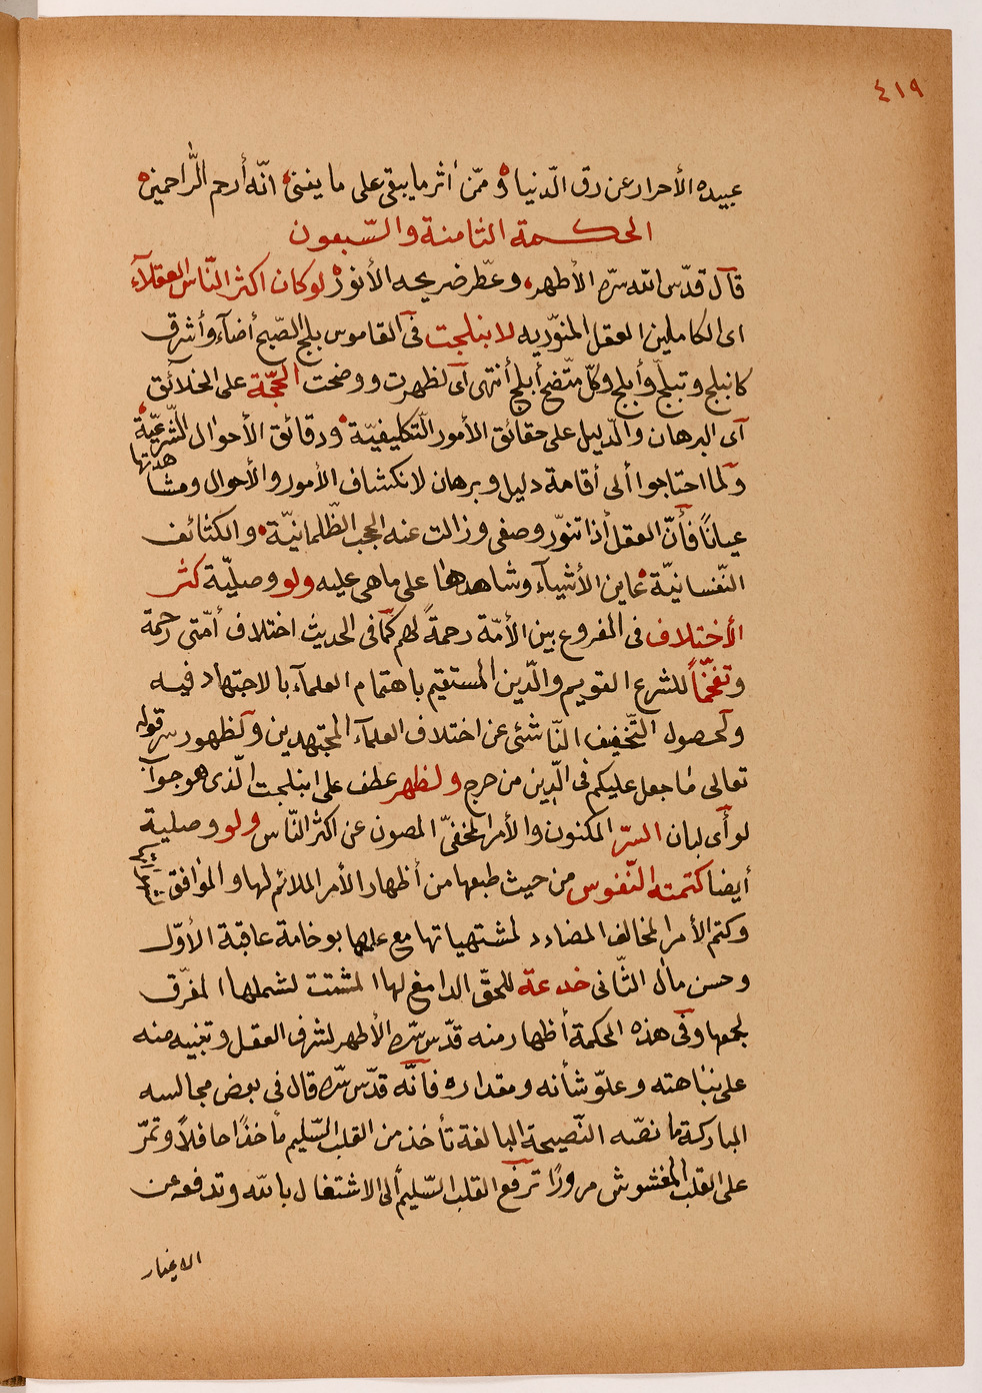 ٤١٩
عبيده الأحرار عن رق الدّنيا و ممّن أثر ما يبقى على ما يفنى انّه أرحم الرّاحمين
الحكمة الثامنة والسّبعون
قال قدّس الله سرّه الأطهر، وعطّر ضريحه الأنور لو كان اكثر النّاس العقلآء
اى الكاملين العقل المنوّريه لانبلجت فى القاموس بلج الصّبح أضآء وأشرق
كانبلج وتبلّج وأبلج وكلّ متّضح أبلج أنتهى أى لظهرت ووضحت الحجّة على الخلائق
آى البرهان والدّليل على حقائق الأمور التّكليفيّة ودقائق الأحوال الشّرعيّة
ولما احتاجوا ألى أقامة دليل وبرهان لانكشاف الأمور والأحوال ومشاهدتها
عيانًا فأنّ العقل أذا تنوّر وصفى وزالت عنه الحجب الظّلمانيّة والكثائف
النّفسانيّة عاين الأشيآء وشاهدها على ماهى عليه ولو وصليّة كثر
الأختلاف فى الفروع بين الأمّة رحمةً لهم كما فى الحديث اختلاف أمّتى رحمة
وتفخّمًا للشرع القويم والدّين المستقيم باهتمام العلمآء بالاجتهاد فيه
ولحصول التّخفيف النّاشئ عن اختلاف العلمآء المجتهدين ولظهور سر قوله
تعالى ما جعل عليكم فى الدّين من حرج ولظهر عطف على انبلجت الّذى هو جواب
لو أى لبان السرّ المكنون والأمر المخفىّ المصون عن اكثر النّاس ولو وصلية
أيضا كتمته النّفوس من حيث طبعها من أظهار الأمر الملائم لها والموافق
وكتم الأمر المخالف المضادد لمشتهياتها مع علمها بوخامة عاقبة الأوّل
وحسن مآل الثّانى خدعة للحقّ الدامغ لها المشتت لشملها المفرّق
لجمعها وفى هذه الحكمة أظهار منه قدّس سرّه الأطهر لشرف العقل وتنبيه منه
على نباهته وعلوّ شأنه ومقداره فانّه قدّس سرّه قال فى بعض مجالسه
المباركة ما نصّه النّصيحة البالغة تأخذ من القلب السّليم مأخذًا حافلاً وتمرّ
على القلب المغشوش مرورًا ترفع القلب السّليم ألى الاشتغال بالله وتدفعه عن
الاغيار